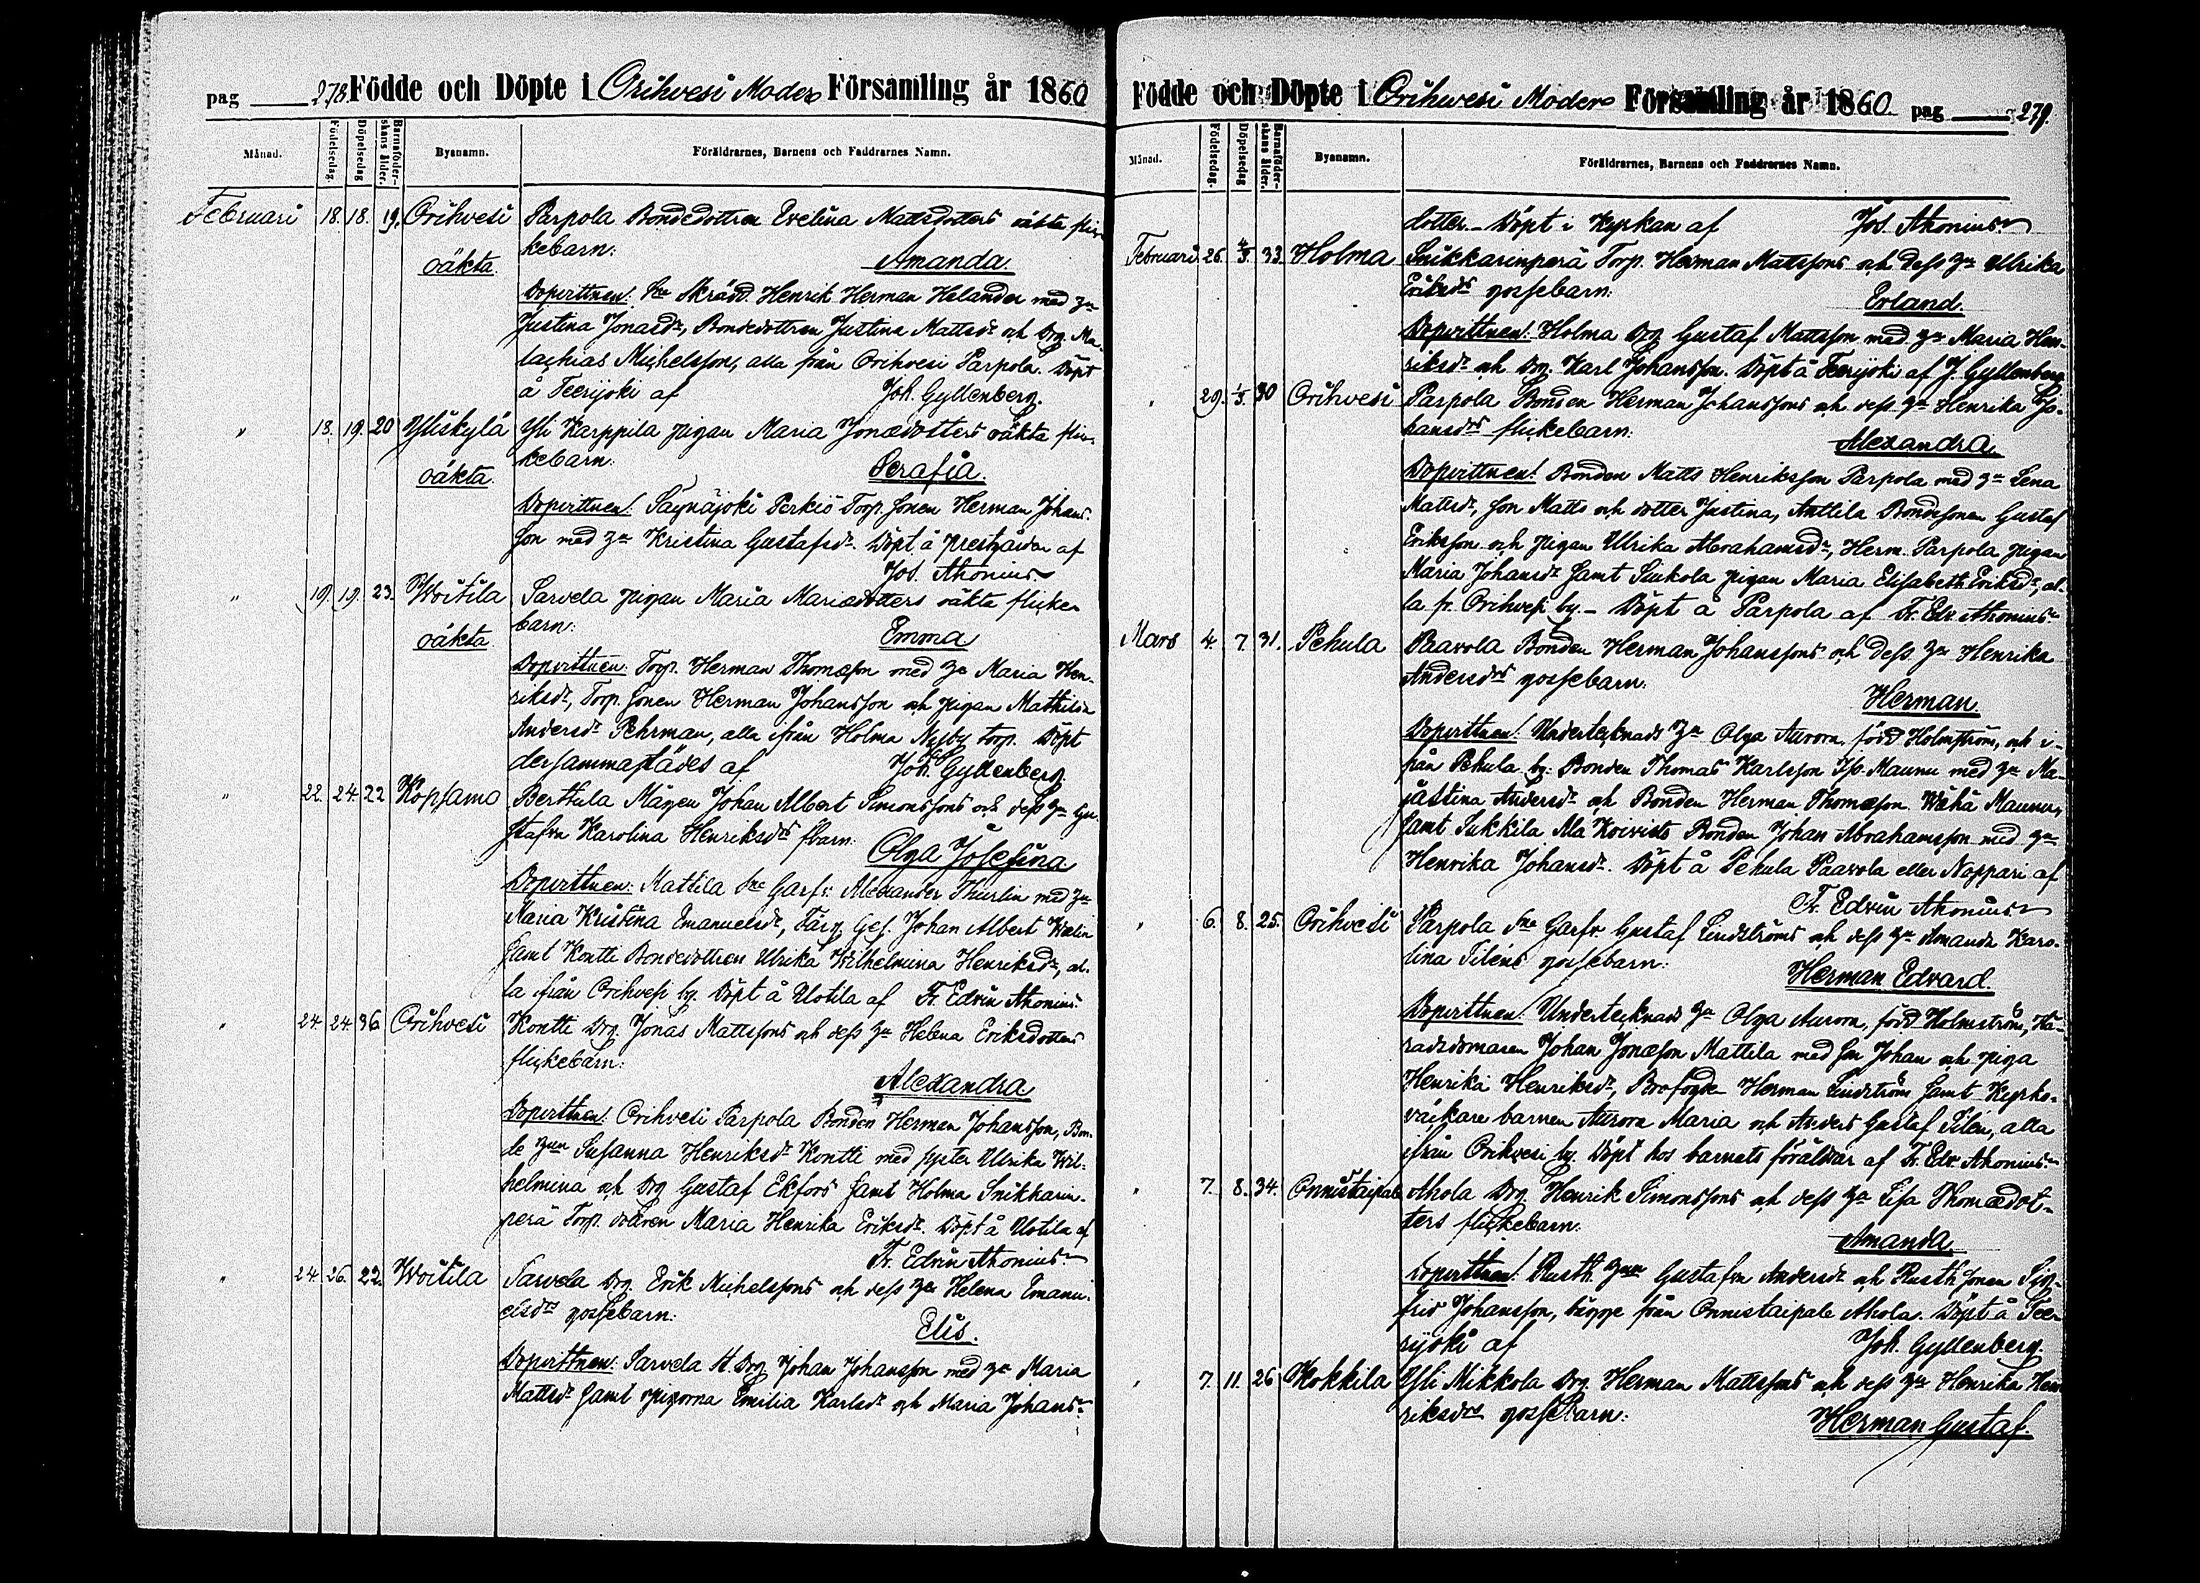 pag 278. Födde och Döpte i Orihvesi Moder Församling år 1860
Månad. Födelsedag. Döpelsedag Barnaföderskans ålder. Bysnamn. Föräldrarnes, Barnens och Faddrarnes Namn.
Februari 18. 18. 19. Orihvesi Parpola Bondedottren Evelina Mattsdotters oäkta flic-
kebarn:
oäkta Amanda.
Dopvittnen: Skrädd. Henrik Herman Helander med
Justina Jonasdr, Bondedottren Justina Mattsdr och Drg. Ma-
lachias Michelsson, alla från Orihvesi Parpola. Döpt
å Teerijoki af Joh. Gyllenberg.
" 18. 19. 20 Yliskylä Yli Karppila pigan Maria Jonædotters oäkta flic-
kebarn:
oäkta Serafia.
Dopvittnen: Säynäjoki Perkiö Torp. sonen Herman Johans-
son med Kristina Gustafsdr. Döpt å prestgården af
Jos. Ahonius
" 19. 19. 23. Woitila Sarvela pigan Maria Mariædotters oäkta flicke-
barn:
oäkta Emma
Dopvittnen: Torp. Herman Thomasson med Maria Hen-
riksdr, Torp. sonen Herman Johansson och pigan Mathilda
Andersdr Pehrman, alla ifrån Holma Nyby torp. Döpt
dersammastädes af Joh. Gyllenberg.
" 22. 24. 22 Kopsamo Berttula Mågen Johan Albert Simonssons och dess Gu-
stafva Karolina Henriksdrs fbarn:
Olga Josefina
Dopvittnen: Mattila Garfv. Alexander Thurlin med
Maria Kristina Emanuelsdr, Färg. Ges. Johan Albert Walin
samt Kontti Bondedottren Ulrika Wilhelmina Henriksdr, al-
la ifrån Orihvesi by. Döpt å Uotila af Fr. Edvin Ahonius.
" 24. 24. 36. Orihvesi Kontti Drg. Jonas Mattssons och dess Helena Eriksdotters
flickebarn:
Alexandra
Dopvittnen: Orihvesi Parpola Bonden Herman Johansson, Bon-
de Susanna Henriksdr Kontti med syster Ulrika Wil-
helmina och Drg Gustaf Ekfors samt Holma Snikkarin-
perä Torp. dottren Maria Henrika Eriksdr. Döpt å Uotila af
Fr. Edvin Ahonius
" 24. 26. 22. Woitila Sarvela Drg. Erik Michelssons och dess Helena Emanu-
elsdrs gossebarn:
Elis.
Dopvittnen: Sarvela Drg. Johan Johansson med Maria
Mattsdr samt pigorna Emilia Karlsdr och Maria Johans-
Födde och Döpte i Orihvesi Moder Församling år 1860. pag 279.
Månad. Födelsedag. Döpelsedag Barnaföderskans ålder. Bysnamn. Föräldrarnes, Barnens och Faddrarnes Namn.
dotter. Döpt i Kyrkan af Jos. Ahonius
Februari 26. 4/3. 33. Holma Snikkarinperä Torp. Herman Mattssons och dess Ulrika
Eriksdrs gossebarn:
Erland.
Dopvittnen: Holma Drg Gustaf Mattsson med Maria Hen-
riksdr och Drg. Karl Johansson. Döpt å Teerijoki af J. Gyllenberg
" 29. 1/3. 30 Orihvesi Parpola Bonden Herman Johanssons och dess Henrika Jo-
hansdrs flickebarn:
Alexandra
Dopvittnen: Bonden Matts Henriksson Parpola med Lena
Mattsdr, son Matts och dotter Justina, Anttila Bondesonen Gustaf
Eriksson och pigan Ulrika Abrahamsdr, Herm. Parpola pigan
Maria Johansdr samt Seukola pigan Maria Elisabeth Eriksdr, al-
la fr. Orihvesi by. Döpt å Parpola af Fr. Edv. Ahonius
Mars 4. 7. 31. Pehula Paavola Bonden Herman Johanssons och dess Henrika
Andersdrs gossebarn:
Herman
Dopvittnen: Undertecknads Olga Aurora, född Holmström, och i-
från Pehula by: Bonden Thomas Karlsson Iso-Maunu med Ma-
jastina Andersdr och Bonden Herman Thomasson Wähä Maunu,
samt Sukkila Ala Koivisto Bonden Johan Abrahamsson med
Henrika Johansdr. Döpt å Pehula Paavola eller Noppari af
Fr. Edvin Ahonius
" 6. 8. 25. Orihvesi Parpola Garfv. Gustaf Lindströms och dess Amanda Karo-
lina Siléns gossebarn:
Herman Edvard.
Dopvittnen: Undertecknads Olga Aurora, född Holmström, Hä-
radsdomaren Johan Jonasson Mattila med son Johan och piga
Henrika Henriksdr, Brofogde Herman Lindström samt Kyrko-
väckare barnen Aurora Maria och Anders Gustaf Silen, alla
ifrån Orihvesi by. Döpt hos barnets föräldrar af Fr. Edv. Ahonius
" 7. 8. 34. Onnistaipale Ahola Drg. Henrik Simonssons och dess Lisa Thomædot-
ters flickebarn:
Amanda
Dopvittnen: Rusth. Gustafva Andersdr och Rusth. sonen Sig-
frid Johansson, bägge från Onnistaipale Ahola. Döpt å Tee-
rijoki af Joh. Gyllenberg.
" 7. 11. 26 Kokkila Yli Mikkola Drg. Herman Mattssons och dess Henrika Hen-
riksdrs gossebarn:
Herman Gustaf.